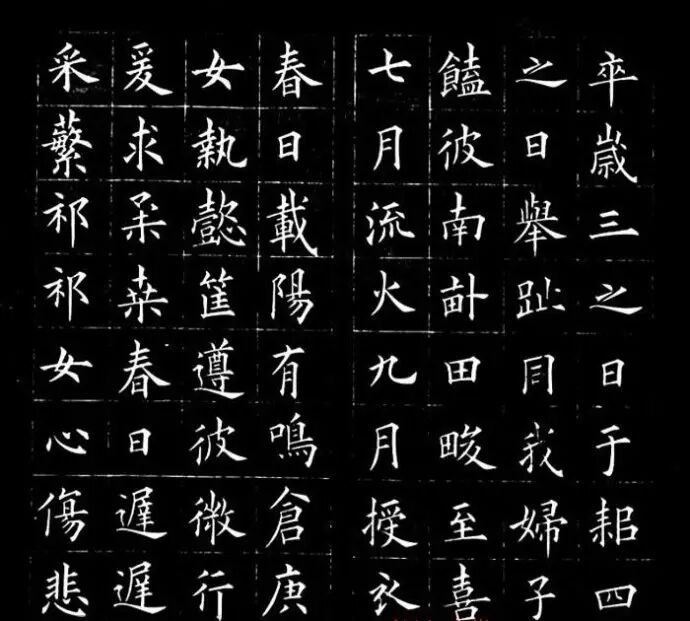 卒歲三之日于耜四
之日舉趾同我婦子
饁彼南畝田畯至喜
七月流火九月授衣
春日載陽有鳴倉庚
女執懿筐遵彼微行
爰求柔桑春日遲遲
采蘩祁祁女心傷悲